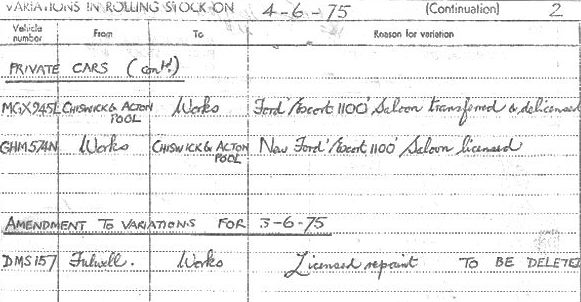 VARIATIONS IN ROLLING STOCK ON 4-6-75 (Continuation) 2
Vehicle number From To Reason for variation
PRIVATE CARS (cont'd.)
MGX945L CHISWICK & ACTON POOL Works Ford 'Escort 1100' Saloon transferred & delicensed
GHM574N Works CHISWICK & ACTON POOL New Ford 'Escort 1100' Saloon licensed
AMENDMENT TO VARIATIONS FOR 3-6-75
DMS157 Fulwell. Works Licensed repaint TO BE DELETED